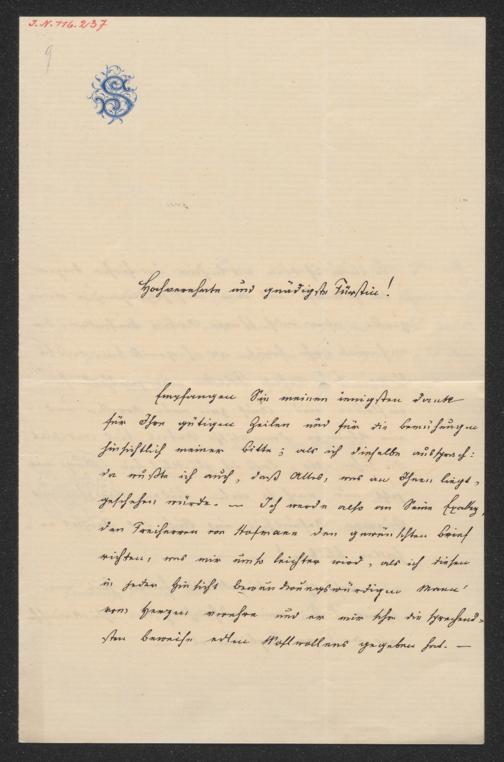 I.N. 116.237
9
S
Hochverehrte und gnädigste Fürstin!
Empfangen Sie meinen innigsten Dank
für Ihre gütigen Zeilen und für die Bemühungen
hinsichtlich meiner Bitte; als ich dieselbe aussprach:
da wußte ich auch, daß Alles, was an Ihnen liegt,
geschehen würde. — Ich werde also an Seine Exzellenz,
den Freiherrn von Hofmann den gewünschten Brief
richten, was mir umso leichter wird, als ich diesen
in jeder Hinsicht bewunderungswürdigen Mann
von Herzen verehre und er mir schon die sprechend-
sten Beweise edlen Wohlwollens gegeben hat. —